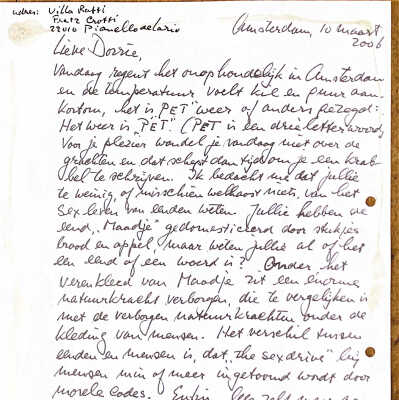 adres: Villa Ratti
Fraz Crotti
22010 Pianello del Lario
Amsterdam, 10 maart
2006
Lieve Dorrie,
Vandaag regent het onophoudelijk in Amsterdam
en de temperatuur voelt kil en guur aan.
Kortom, het is "PET" weer of anders gezegd:
Het weer is "PET". (PET is een drieletterwoord)
Voor je plezier wandel je vandaag niet over de
grachten en dat schept dan tijd om je een krab-
bel te schrijven. Ik bedacht me dat jullie
te weinig, of misschien welhaast niets, van het
sexleven van eenden weten. Jullie hebben de
eend "Maadje" gedomesticeerd door stukjes
brood en appel, maar weten jullie al of het
een eend of een woerd is? Onder het
verenkleed van Maadje zit een enorme
natuurkracht verborgen, die te vergelijken is
met de verborgen natuurkrachten onder de
kleding van mensen. Het verschil tussen
eenden en mensen is, dat "the sexdrive" bij
mensen min of meer ingetoomd wordt door
morele codes.